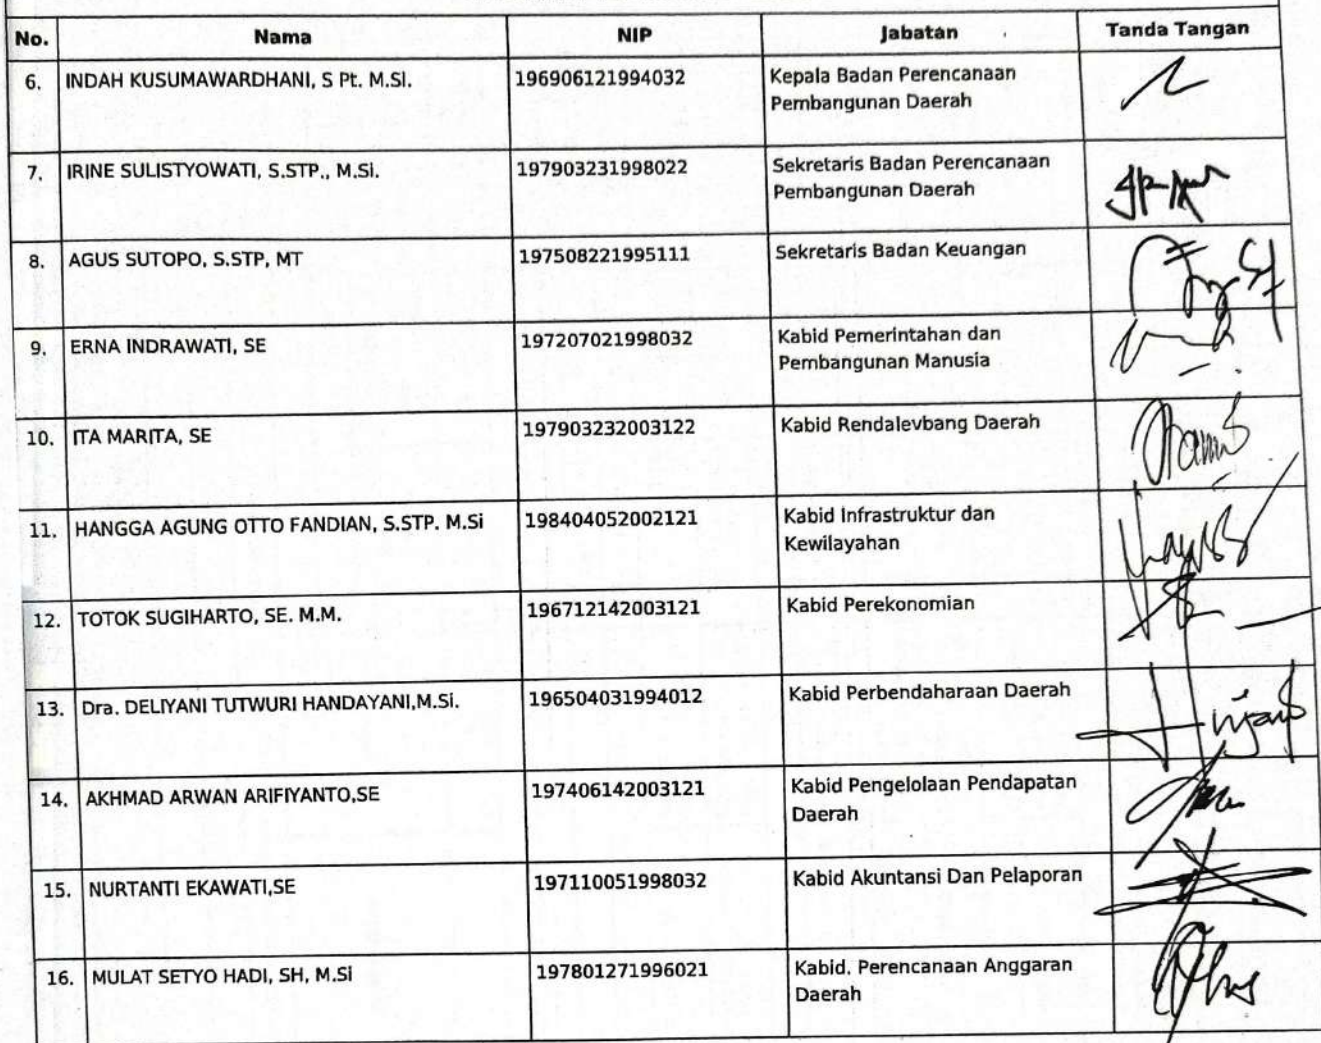 No. Nama NIP Jabatan Tanda Tangan
6. INDAH KUSUMAWARDHANI, S Pt. M.Si. 196906121994032 Kepala Badan Perencanaan
Pembangunan Daerah
7. IRINE SULISTYOWATI, S.STP., M.Si. 197903231998022 Sekretaris Badan Perencanaan
Pembangunan Daerah
8. AGUS SUTOPO, S.STP, MT 197508221995111 Sekretaris Badan Keuangan
9. ERNA INDRAWATI, SE 197207021998032 Kabid Pemerintahan dan
Pembangunan Manusia
10. ITA MARITA, SE 197903232003122 Kabid Rendalevbang Daerah
11. HANGGA AGUNG OTTO FANDIAN, S.STP. M.Si 198404052002121 Kabid Infrastruktur dan
Kewilayahan
12. TOTOK SUGIHARTO, SE. M.M. 196712142003121 Kabid Perekonomian
13. Dra. DELIYANI TUTWURI HANDAYANI,M.Si. 196504031994012 Kabid Perbendaharaan Daerah
14. AKHMAD ARWAN ARIFIYANTO,SE 197406142003121 Kabid Pengelolaan Pendapatan
Daerah
15. NURTANTI EKAWATI,SE 197110051998032 Kabid Akuntansi Dan Pelaporan
16. MULAT SETYO HADI, SH, M.Si 197801271996021 Kabid. Perencanaan Anggaran
Daerah